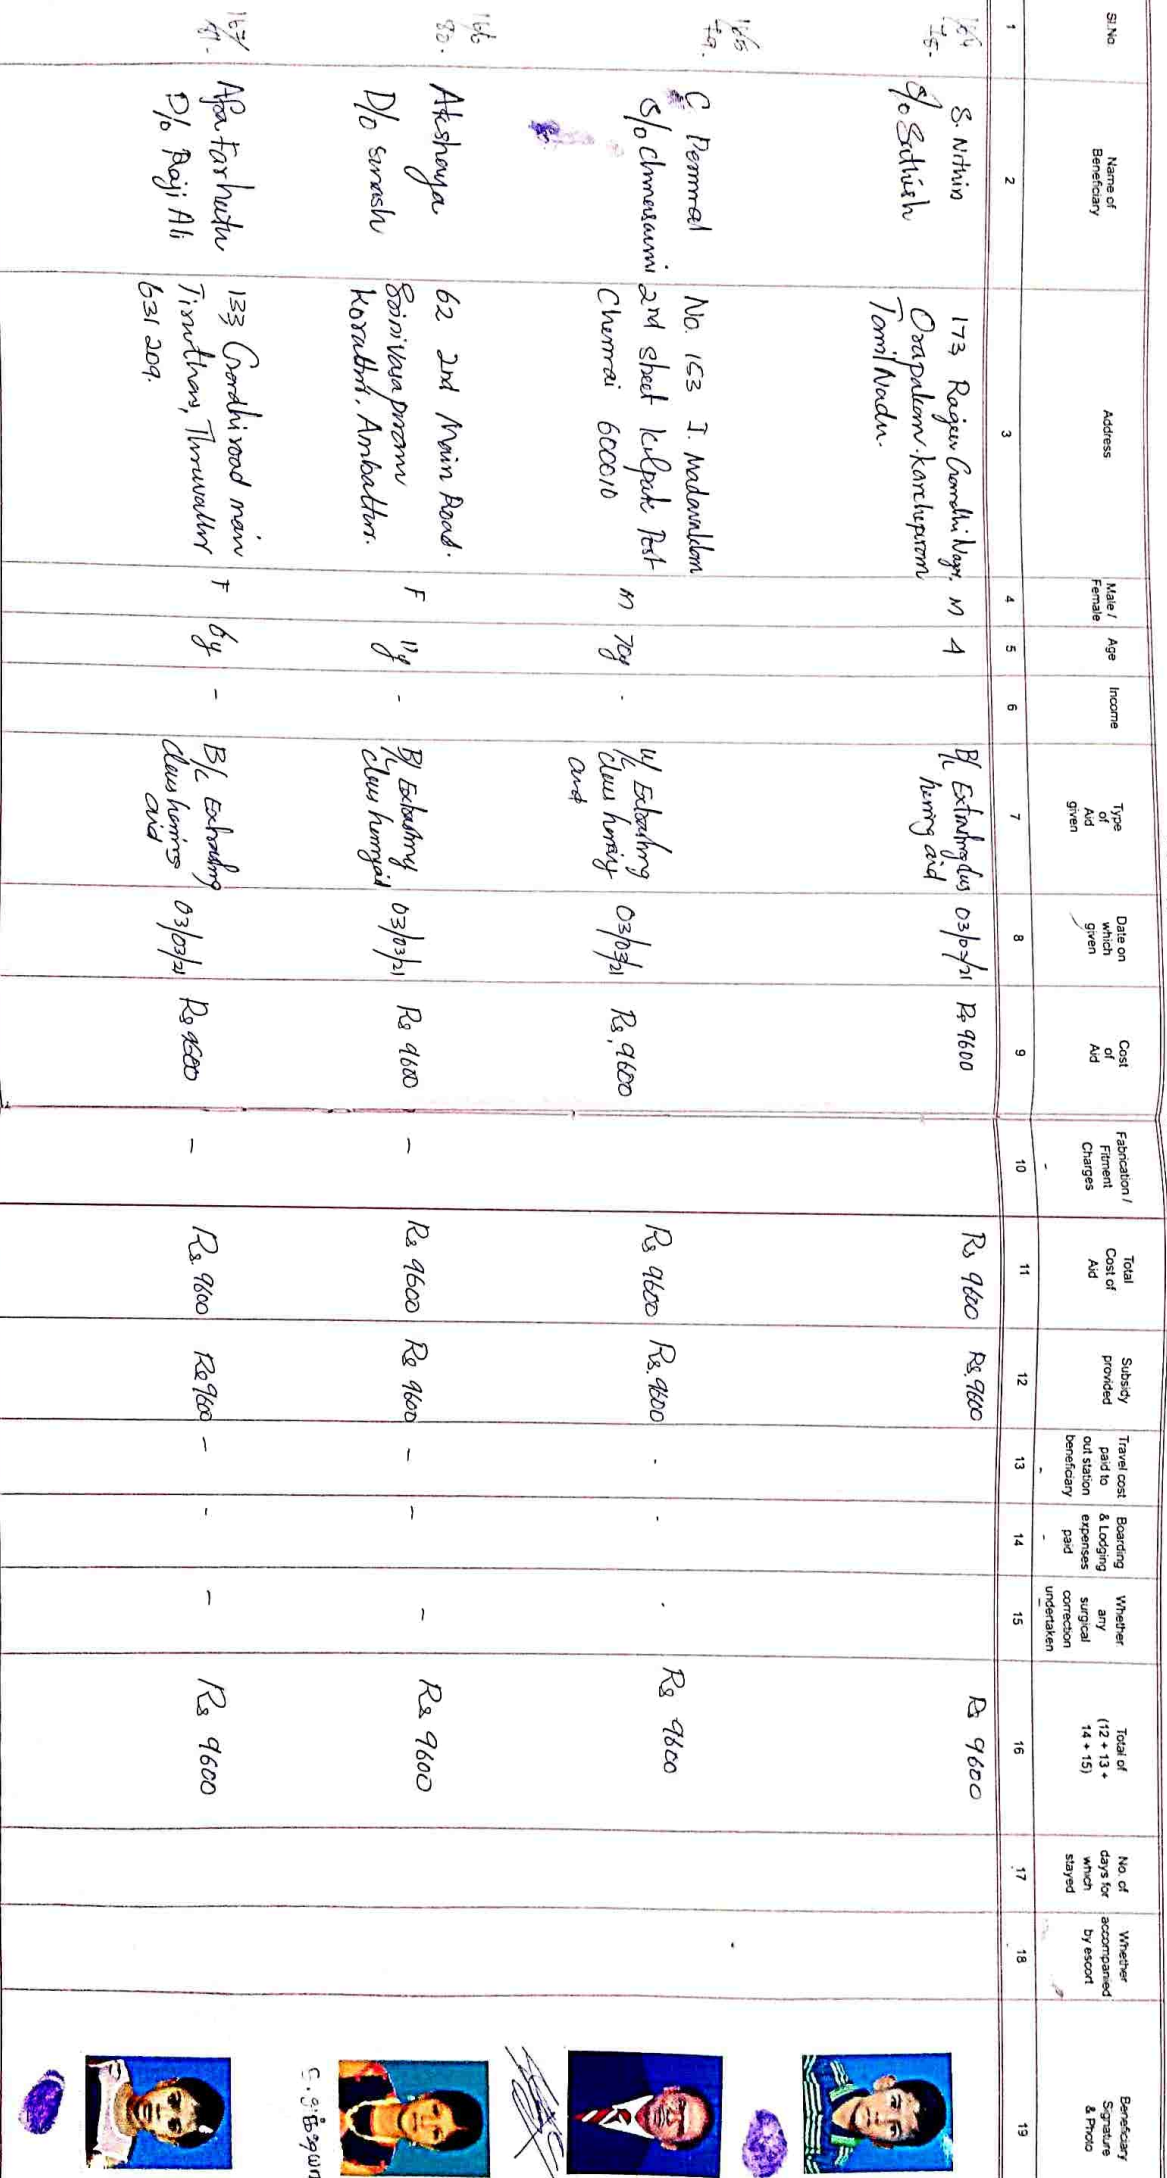 Sl.No
Name of
Beneficiary
Address
Male /
Female
Age
Income
Type
of
Aid
given
Date on
which
given
Cost
of
Aid
Fabrication /
Fitment
Charges
Total
Cost of
Aid
Subsidy
provided
Travel cost
paid to
out station
beneficiary
Boarding
& Lodging
expenses
paid
Whether
any
surgical
correction
undertaken
Total of
(12 + 13 +
14 + 15)
No. of
days for
which
stayed
Whether
accompanied
by escort
Beneficiary
Signature
& Photo
1 2 3 4 5 6 7 8 9 10 11 12 13 14 15 16 17 18 19
164
S. Nithin
S/o Sathish
173, Rajeev Gandhi Nagr.
Orapakam. Kancheepurom
Tamil Nadu.
M
4
B/L
hering aid
03/03/21
Rs 9600
Rs 9600
Rs. 9600
Rs 9600
165
79.
C. Perumal
S/o Chinnasami
No. 153 I. Madavakkam
2nd street Kilpauk Post
Chennai 600010
M
70y
03/03/21
Rs. 9600
Rs 9600
Rs. 9600
Rs 9600
166
80.
Akshaya
D/o suresh
62 2nd Main Road.
Srinivasapuram
Korattur. Ambattur.
F
11y
-
B/L
03/03/21
Rs 9600
-
Rs 9600
Rs 9600
-
-
-
Rs 9600
167
81.
D/o Raji Ali
133 Gandhi road main
Tiruthani, Thiruvallur
631 209.
F
6y
-
B/L
aid
03/03/21
Rs 9600
-
Rs. 9600
Rs 9600
-
-
-
Rs 9600